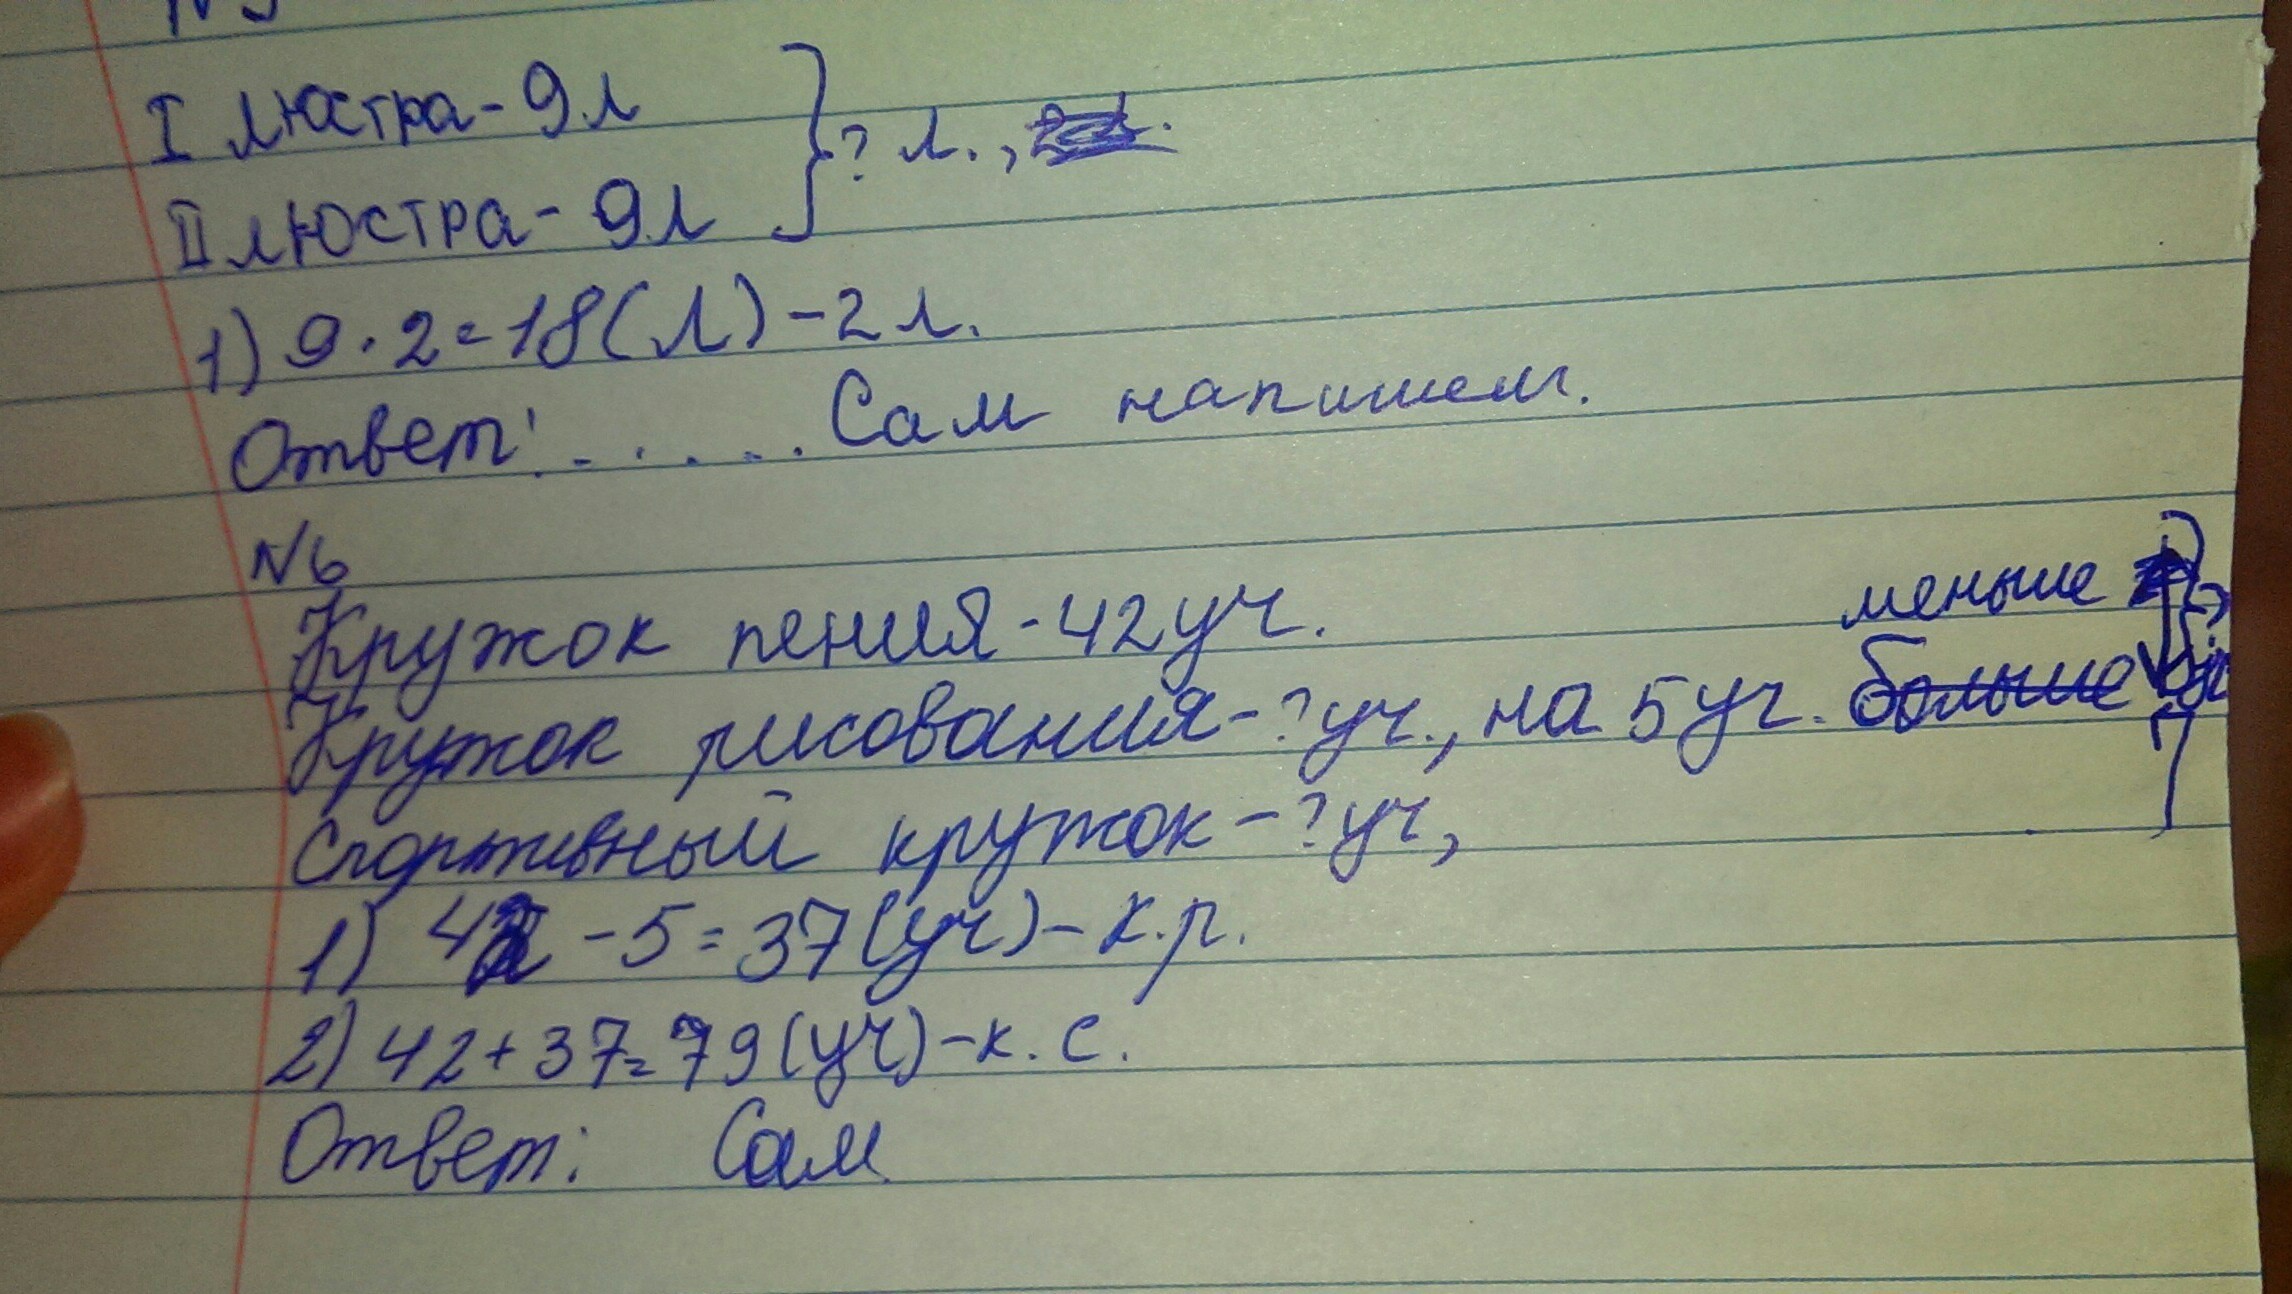 I люстра - 9 л
II люстра - 9 л
? л.,
1) 9 · 2 = 18 (л) - 2 л.
Ответ: ..... Сам напишем.
№6
Кружок пения - 42 уч.
меньше
Кружок рисования - ? уч., на 5 уч. больше
Спортивный кружок - ? уч,
1) 42 - 5 = 37 (уч) - к.р.
2) 42 + 37 = 79 (уч) - к.с.
Ответ: Сам